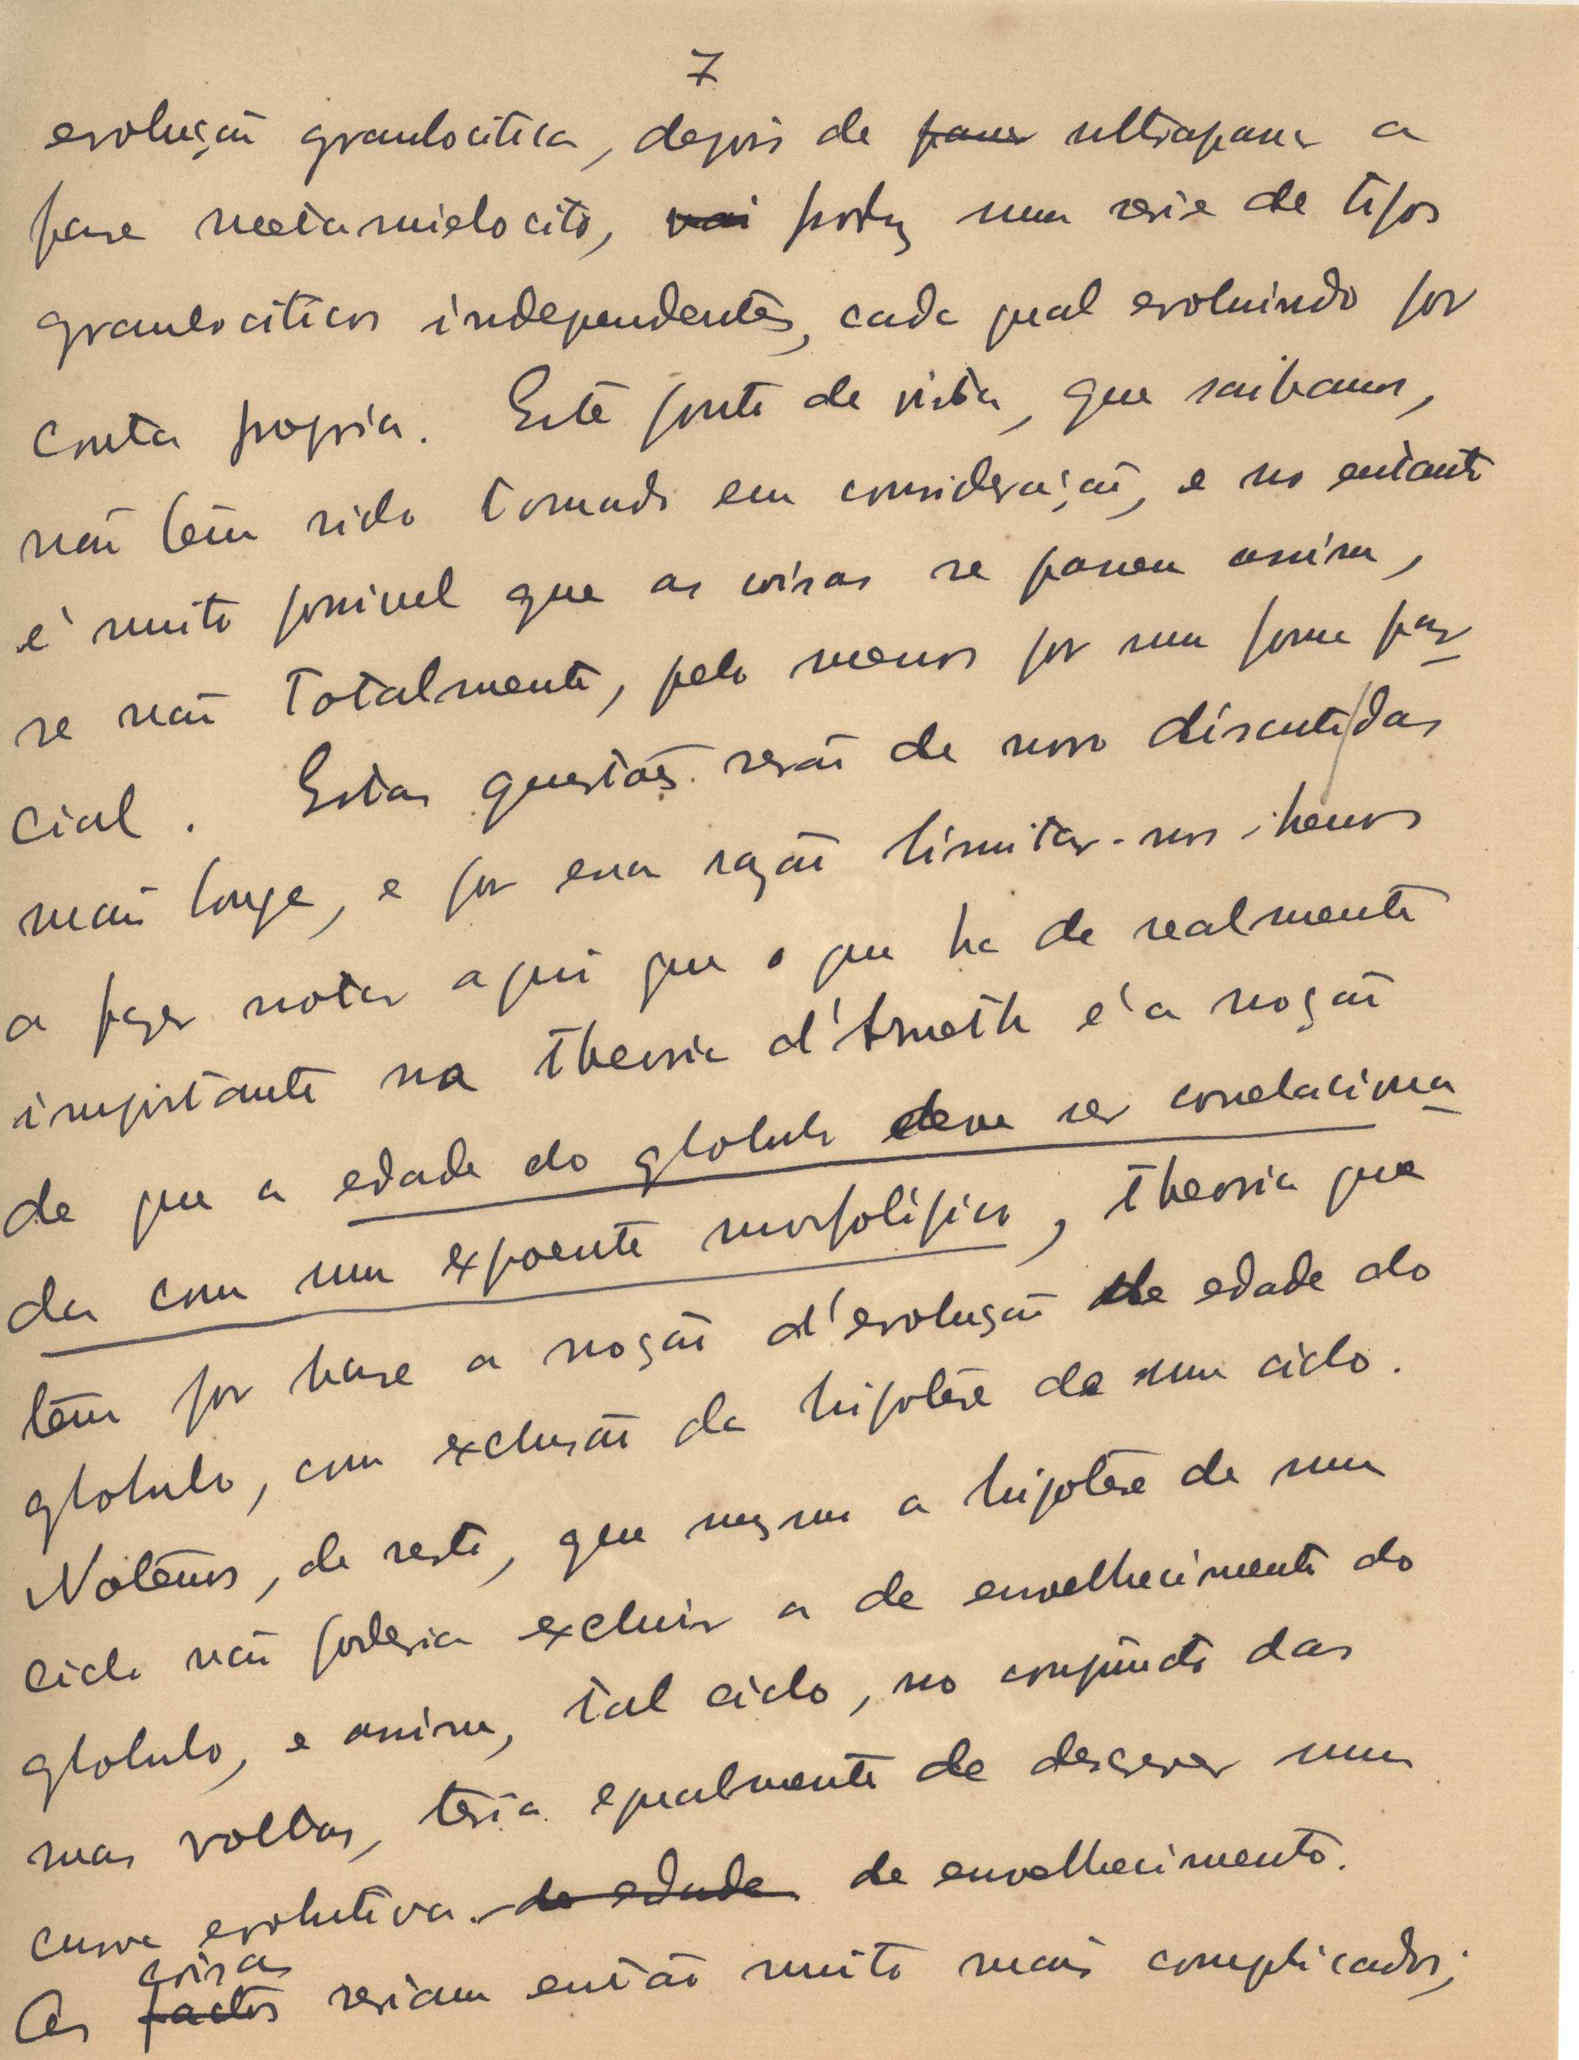 7
evolução granulocitica, depois de passar ultrapassar a
fase metamielocito, vai produz uma serie de tipos
granulociticos independentes, cada qual evoluindo por
conta propria. Este ponto de vista, que saibamos,
não tem sido tomado em consideração, e no entanto
é muito possivel que as coisas se passem assim,
se não totalmente, pelo menos por uma forma par
cial. Estas questões serão de novo discutidas
mais longe, e por essa razão limitar-nos-hemos
a fazer notar aqui que o que ha de realmente
importante na theoria d'Arneth é a noção
de que a edade do globulo deve ser correlaciona
da com um expoente morfologico, theoria que
tem por base a noção d'evolução de edade do
globulo, com exclusão da hipotese de um ciclo.
Notemos, de resto, que mesmo a hipotese de um
ciclo não poderia excluir a de envelhecimento do
globulo, e assim, tal ciclo, no conjuncto das
suas voltas, teria egualmente de descrever uma
curva evolutiva de edade de envelhecimento.
coisas
As factos seriam então muito mais complicados;